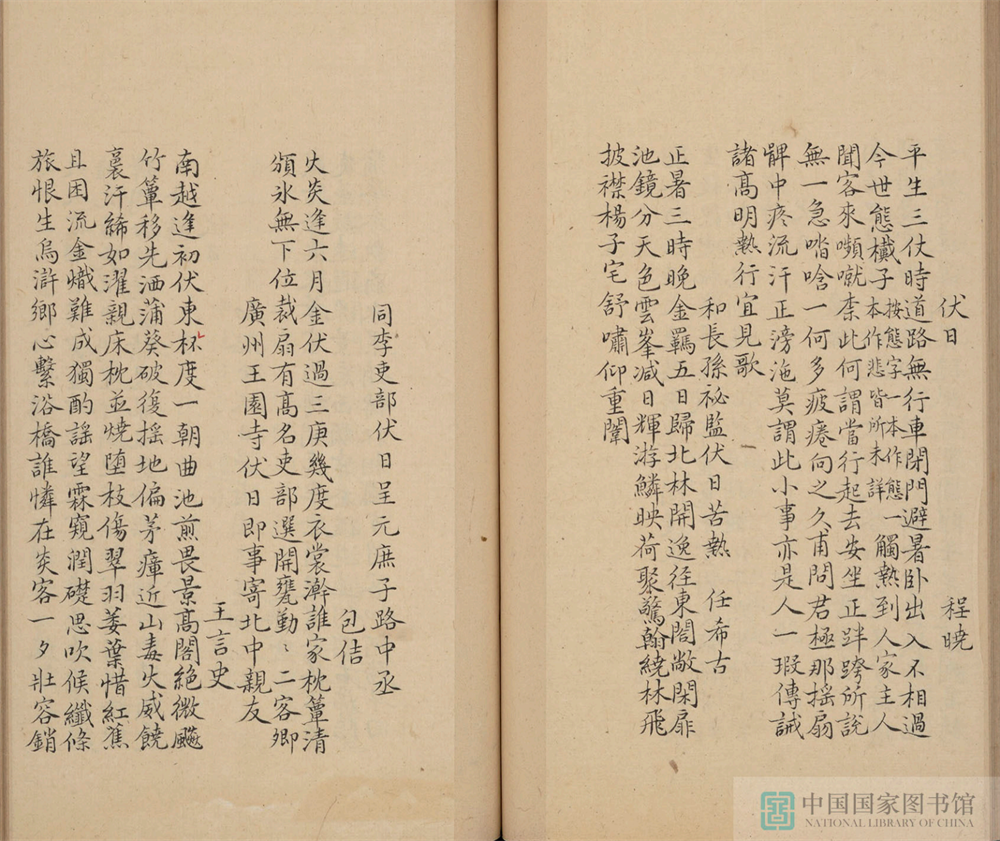 伏日 程曉
平生三伏時道路無行車閉門避暑卧出入不相過
今世態襶子按態字一本作態一本作悲皆所未詳觸熱到人家主人
聞客來嚬蹴柰此何謂當行起去安坐正跘跨所說
無一急喈唅一何多疲瘙向之久甫問君極那搖扇
髀中疼流汗正滂沲莫謂此小事亦是人一瑕傳誡
諸高明熱行宜見歌
和長孫祕監伏日苦熱 任希古
正暑三時晚金羈五日歸北林開逸徑東閤敞閑扉
池鏡分天色雲峯減日輝游鱗映荷聚驚翰繞林飛
披襟楊子宅舒嘯仰重闈
同李吏部伏日呈元庶子路中丞
包佶
火炎逢六月金伏過三庚幾度衣裳澣誰家枕簟清
頒氷無下位裁扇有高名吏部選開甕勤〻二客卿
廣州王園寺伏日即事寄北中親友
王言史
南越逢初伏東林度一朝曲池煎畏景高閣絶微飈
竹簟移先洒蒲葵破復搖地偏茅瘴近山毒火威饒
裛汗絺如濯親床枕並燒墮枝傷翠羽萎葉惜紅蕉
且困流金熾難成獨酌謡望霖窺潤礎思吹候纖條
旅恨生烏滸鄉心繫浴橋誰憐在炎客一夕壯容銷
中国国家图书馆
NATIONAL LIBRARY OF CHINA